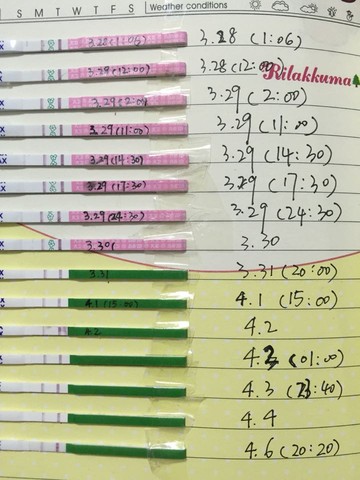 S M T W T F S Weather conditions
3.28(1:06) 3.28 (1:06)
3.29(12:00) 3.28 (12:00)
Rilakkuma
3.29(2:00) 3.29 (2:00)
3.29(11:00) 3.29 (11:00)
3.29(14:30) 3.29 (14:30)
3.29(17:30) 3.29 (17:30)
3.29(24:30) 3.29 (24:30)
3.30( 3.30
3.31 3.31 (20:00)
4.1 (15:00) 4.1 (15:00)
4.2 4.2
4.2 (01:00)
4.3 (23:40)
4.4
4.6 (20:20)